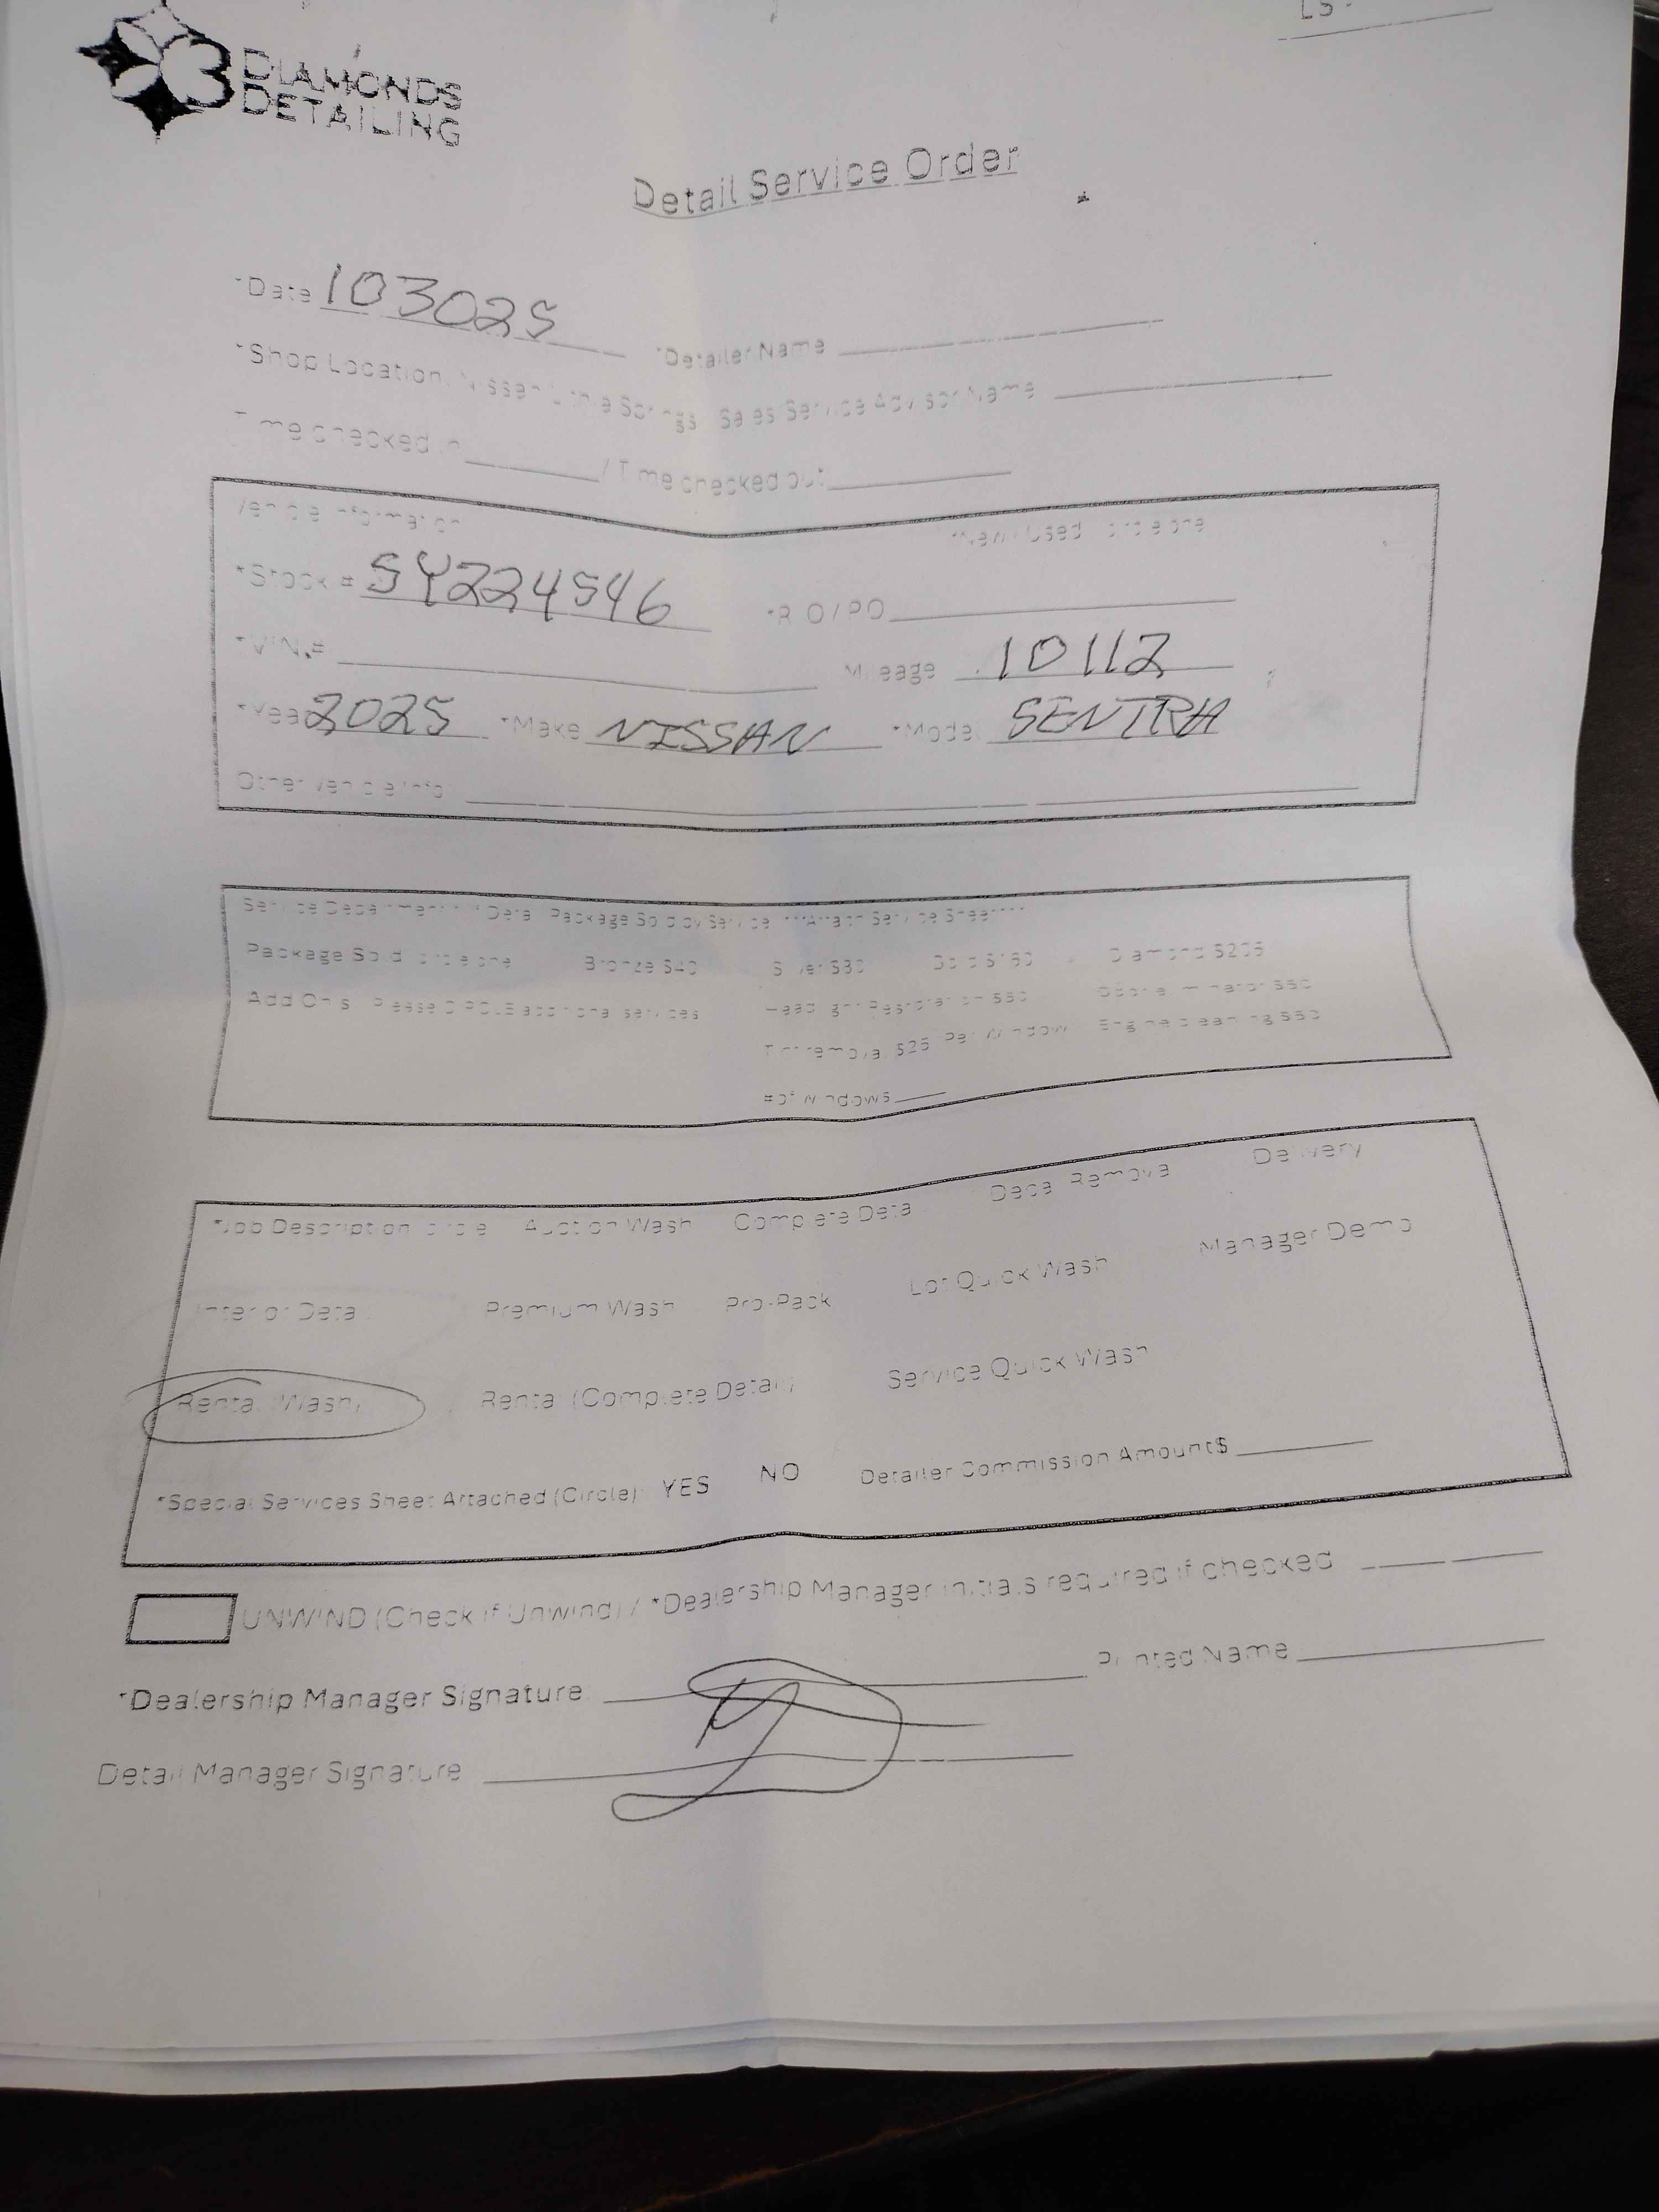 LS-
3 DIAMONDS
DETAILING
Detail Service Order
*Date 103025 *Detailer Name
*Shop Location: Nissan Lithia Springs Sales Service Advisor Name
Time checked in / Time checked out
Vehicle Information *New / Used circle one
*Stock # SY224546 *R.O / P.O
*VIN.# Mileage 10112
*Year 2025 *Make NISSAN *Model SENTRA
Other Vehicle Info
Service Department Detail Package Sold by Service ***Attach Service Sheet****
Package Sold circle one Bronze $40 Silver $80 Gold $180 Diamond $205
Add On s Please CIRCLE additional services Headlight Restoration $50 Odor eliminator $50
Tint removal $25 Per Window Engine cleaning $50
# of windows
*Job Description circle Auction Wash Complete Detail Decal Remove Delivery
Interior Detail Premium Wash Pro-Pack Lot Quick Wash Manager Demo
Rental (Wash) Rental (Complete Detail) Service Quick Wash
*Special Services Sheet Attached (Circle) YES NO Detailer Commission Amount$
UNWIND (Check if Unwind) / *Dealership Manager initials required if checked
*Dealership Manager Signature Printed Name
Detail Manager Signature